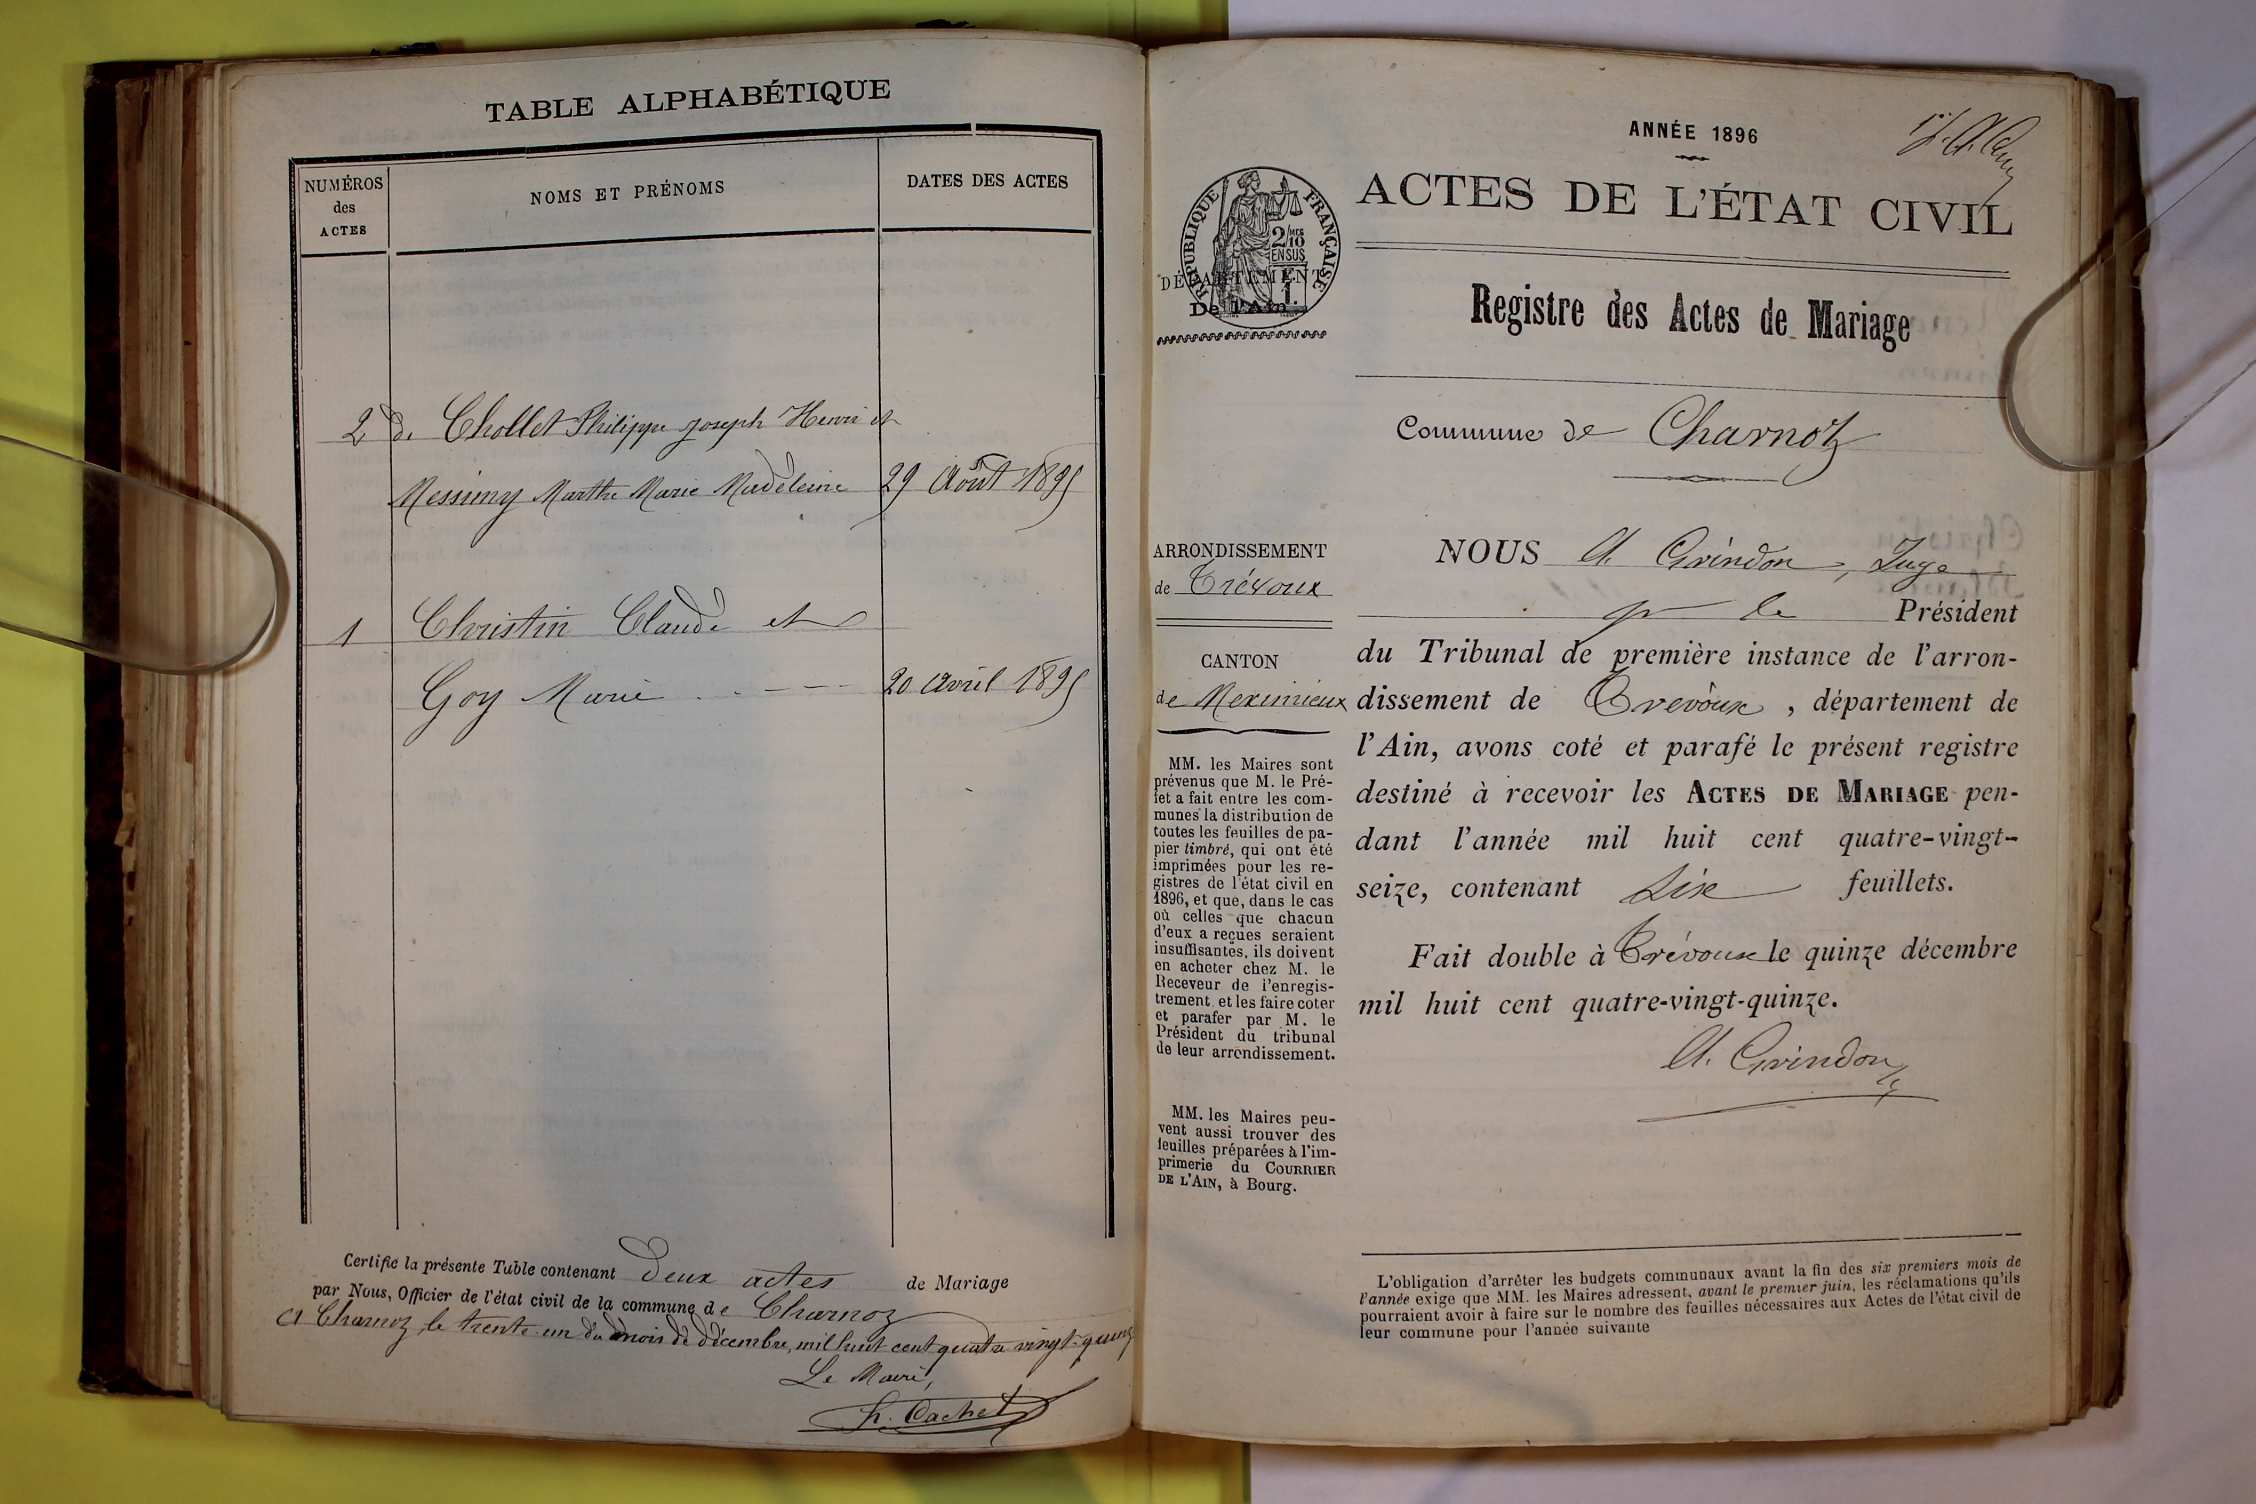 TABLE ALPHABÉTIQUE
NUMÉROS
des
ACTES
NOMS ET PRÉNOMS
DATES DES ACTES
2 de Chollet Philippe Joseph Henri et
Messimy Marthe Marie Madeleine 29 Août 1895
1 Christin Claude et
Goy Marie 20 avril 1895
Certifié la présente Table contenant deux actes de Mariage
par Nous, Officier de l'état civil de la commune de Charnoz
A Charnoz, le trente-un du mois de décembre, mil huit cent quatre vingt-quinze
Le Maire,
h. Cachet
ANNÉE 1896
ACTES DE L'ÉTAT CIVIL
RÉPUBLIQUE FRANÇAISE
2/10
MES
EN SUS
DÉPARTEMENT
De l'Ain
Registre des Actes de Mariage
Commune de Charnoz
ARRONDISSEMENT
de Trévoux
CANTON
de Meximieux
MM. les Maires sont
prévenus que M. le Pré-
fet a fait entre les com-
munes la distribution de
toutes les feuilles de pa-
pier timbré, qui ont été
imprimées pour les re-
gistres de l'état civil en
1896, et que, dans le cas
où celles que chacun
d'eux a reçues seraient
insuffisantes, ils doivent
en acheter chez M. le
Receveur de l'enregis-
trement et les faire coter
et parafer par M. le
Président du tribunal
de leur arrondissement.
MM. les Maires peu-
vent aussi trouver des
feuilles préparées à l'im-
primerie du COURRIER
DE L'AIN, à Bourg.
NOUS A. Grindon, Juge
pr le Président
du Tribunal de première instance de l'arron-
dissement de Trevoux, département de
l'Ain, avons coté et parafé le présent registre
destiné à recevoir les ACTES DE MARIAGE pen-
dant l'année mil huit cent quatre-vingt-
seize, contenant Six feuillets.
Fait double à Trévoux le quinze décembre
mil huit cent quatre-vingt-quinze.
A. Grindon
L'obligation d'arrêter les budgets communaux avant la fin des six premiers mois de
l'année exige que MM. les Maires adressent, avant le premier juin, les réclamations qu'ils
pourraient avoir à faire sur le nombre des feuilles nécessaires aux Actes de l'état civil de
leur commune pour l'année suivante